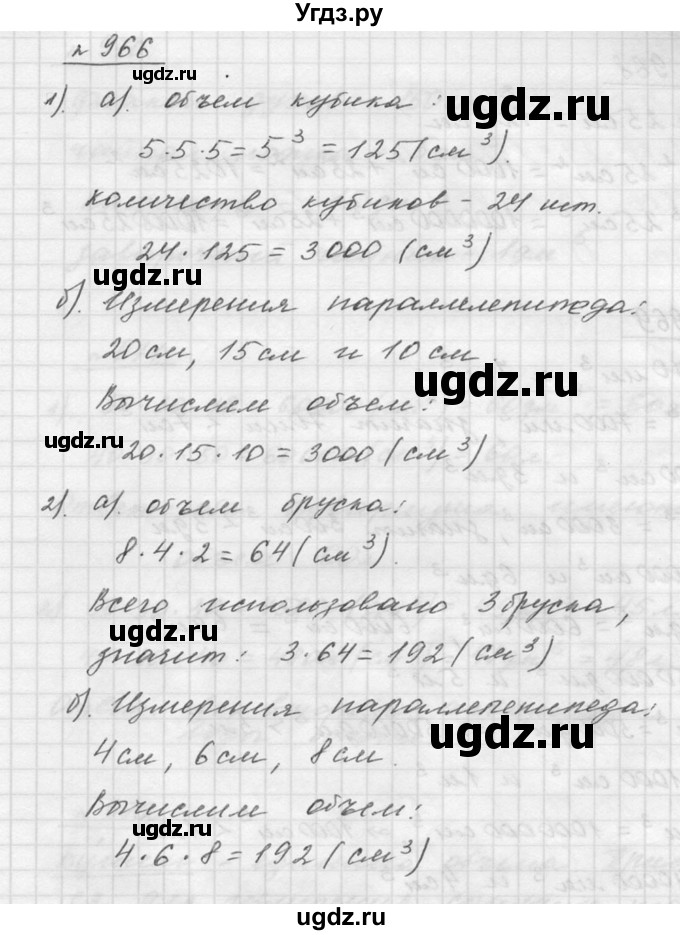 Угдз.ру
№ 966
ugdz.ru
1). а). объём кубика :
ugdz.ru
5·5·5 = 5³ = 125 (см³)
количество кубиков - 24 шт.
24·125 = 3000 (см³)
ugdz.ru
б). Измерения параллелепипеда:
ugdz.ru
20см, 15см и 10 см
ugdz.ru
Вычислим объем:
ugdz.ru
20·15·10 = 3000 (см³)
2). а). объем бруска:
ugdz.ru
8·4·2 = 64 (см³).
Всего использовано 3 бруска,
ugdz.ru
значит: 3·64 = 192 (см³)
б). Измерения параллелепипеда:
ugdz.ru
4см, 6см, 8см.
ugdz.ru
Вычислим объем:
ugdz.ru
4·6·8 = 192 (см³)
ugdz.ru
ugdz.ru